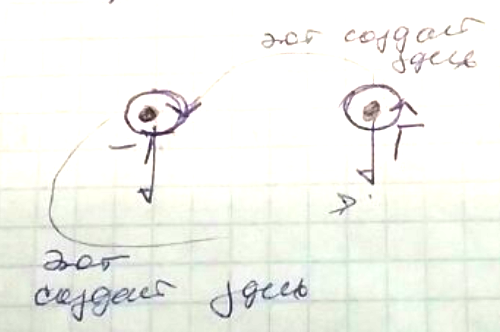 этот создаёт
здесь
этот
создаёт здесь